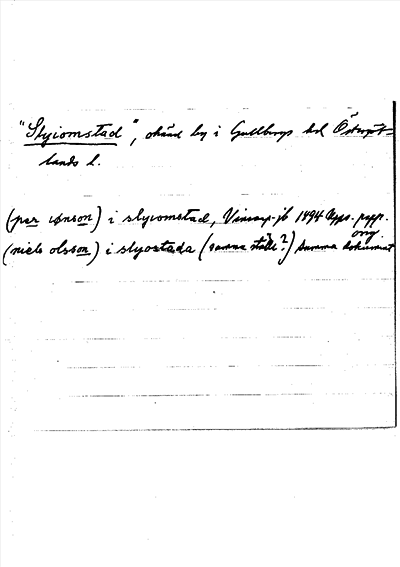 "Slyiomstad", okänd by i Gullbergs hd Östergöt-
lands l.
(par iønson) i slyiomstad, Vinsarp-jb 1494 Upps. papp.
orig.
(niels olsson) i slyostada (samma ställe?) samma dokument